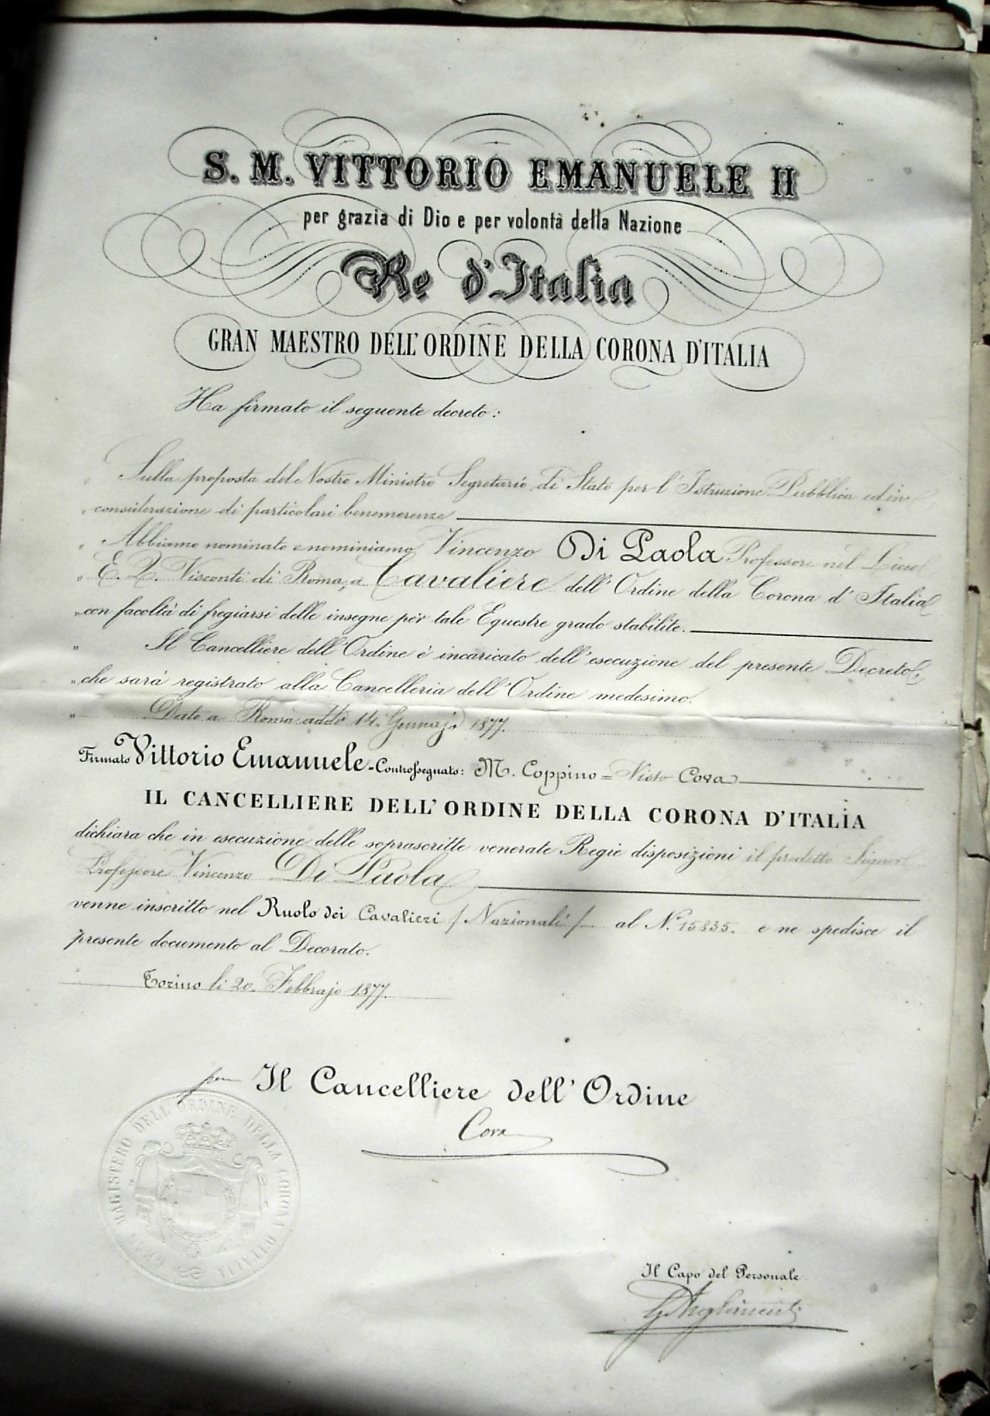 S. M. VITTORIO EMANUELE II
per grazia di Dio e per volontà della Nazione
Re d'Italia
GRAN MAESTRO DELL'ORDINE DELLA CORONA D'ITALIA
Ha firmato il seguente decreto:
" Sulla proposta del Nostro Ministro Segretario di Stato per l'Istruzione Pubblica ed in
" considerazione di particolari benemerenze
" Abbiamo nominato e nominiamo Vincenzo Di Paola Professore nel Liceo
" E. Q. Visconti di Roma, a Cavaliere dell'Ordine della Corona d'Italia
" con facoltà di fregiarsi delle insegne per tale Equestre grado stabilite.
" Il Cancelliere dell'Ordine è incaricato dell'esecuzione del presente Decreto,
" che sarà registrato alla Cancelleria dell'Ordine medesimo.
" Dato a Roma addì 14 Gennajo 1877.
Firmato Vittorio Emanuele - Controssegnato: M. Coppino = Visto Cova
IL CANCELLIERE DELL'ORDINE DELLA CORONA D'ITALIA
dichiara che in esecuzione delle soprascritte venerate Regie disposizioni il predetto Signor
Professore Vincenzo Di Paola
venne inscritto nel Ruolo dei Cavalieri (Nazionali) al N. 15835. e ne spedisce il
presente documento al Decorato.
Torino li 20 Febbrajo 1877.
per Il Cancelliere dell'Ordine
Cova
MAGISTERO DELL'ORDINE DELLA CORONA D'ITALIA
Il Capo del Personale